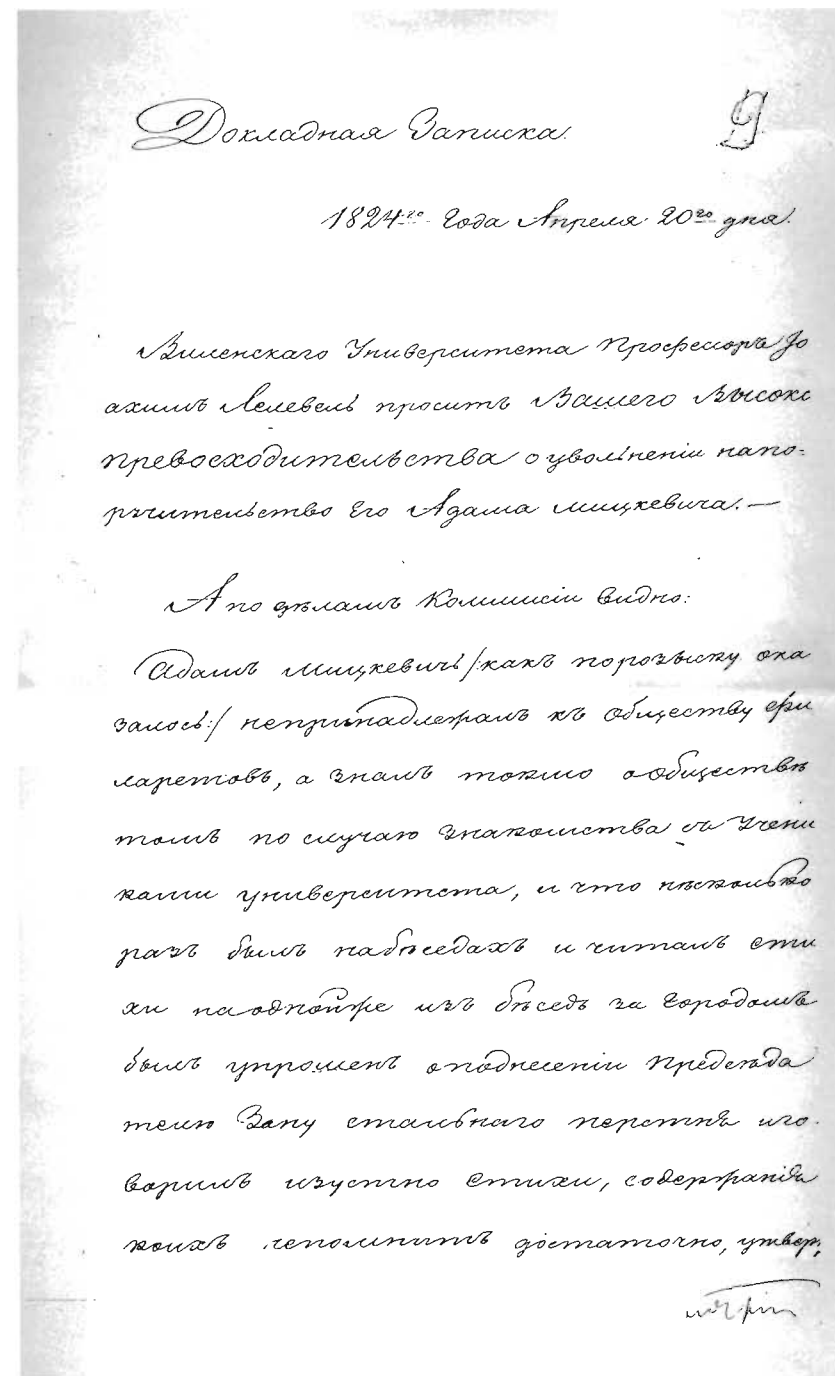 Докладная Записка.
9
1824го Года Апреля 20го дня.
Виленскаго Университета Профессоръ Іо
ахимъ Лелевель проситъ Вашего Высоко
превосходительства о увольненіи на по-
ручительство Его Адама Мицкевича.—
А по дѣламъ Коммисіи видно:
Адамъ Мицкевичь /какъ по розыску ока
залось:/ непринадлежалъ къ обществу фи
ларетовъ, а зналъ токмо о обществѣ
томъ по случаю знакомства съ Учени
ками университета, и что нѣсколько
разъ былъ на бѣседахъ и читалъ сти
хи на однойже изъ бѣседъ за городомъ
былъ упрошенъ о поднесеніи Предсѣда
телю Зану стальнаго перстня и го-
ворилъ изустно стихи, содержанія
коихъ непомнитъ достаточно, утвер,